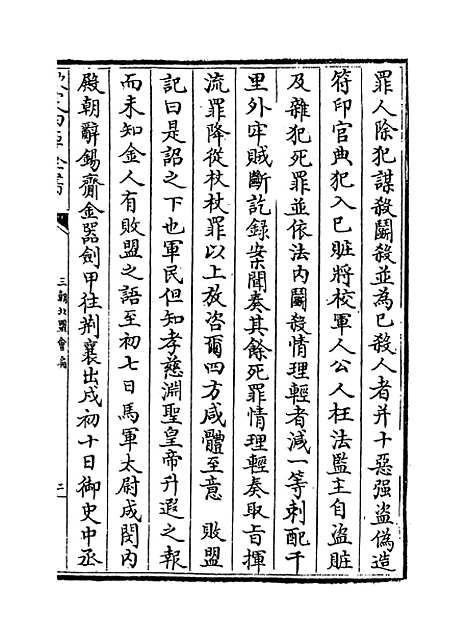 罪人除犯謀殺鬭殺並為已殺人者并十惡强盜偽造
符印官典犯入已贓將校軍人公人枉法監主自盜贓
及雜犯死罪並依法内鬭殺情理輕者減一等刺配千
里外牢賊斷訖録案聞奏其餘死罪情理輕奏取旨揮
流罪降從杖杖罪以上放咨爾四方咸體至意 敗盟
記曰是詔之下也軍民但知孝慈淵聖皇帝升遐之報
而未知金人有敗盟之語至初七日馬軍太尉成閔内
殿朝辭錫齎金器劍甲往荆襄出戍初十日御史中丞
欽定四庫全書
三朝北盟會編